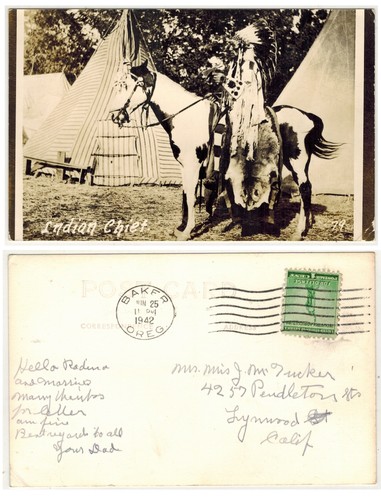 Indian Chief
79
POST CARD
CORRESPONDENCE
ADDRESS
BAKER
JUN 25
11 AM
1942
OREG
Hello
and
many thanks
for letter
am fine
Best regards to all
your Dad
Mrs. Mrs J. Mc Tucker
4257 Pendleton
Lynwood
Calif